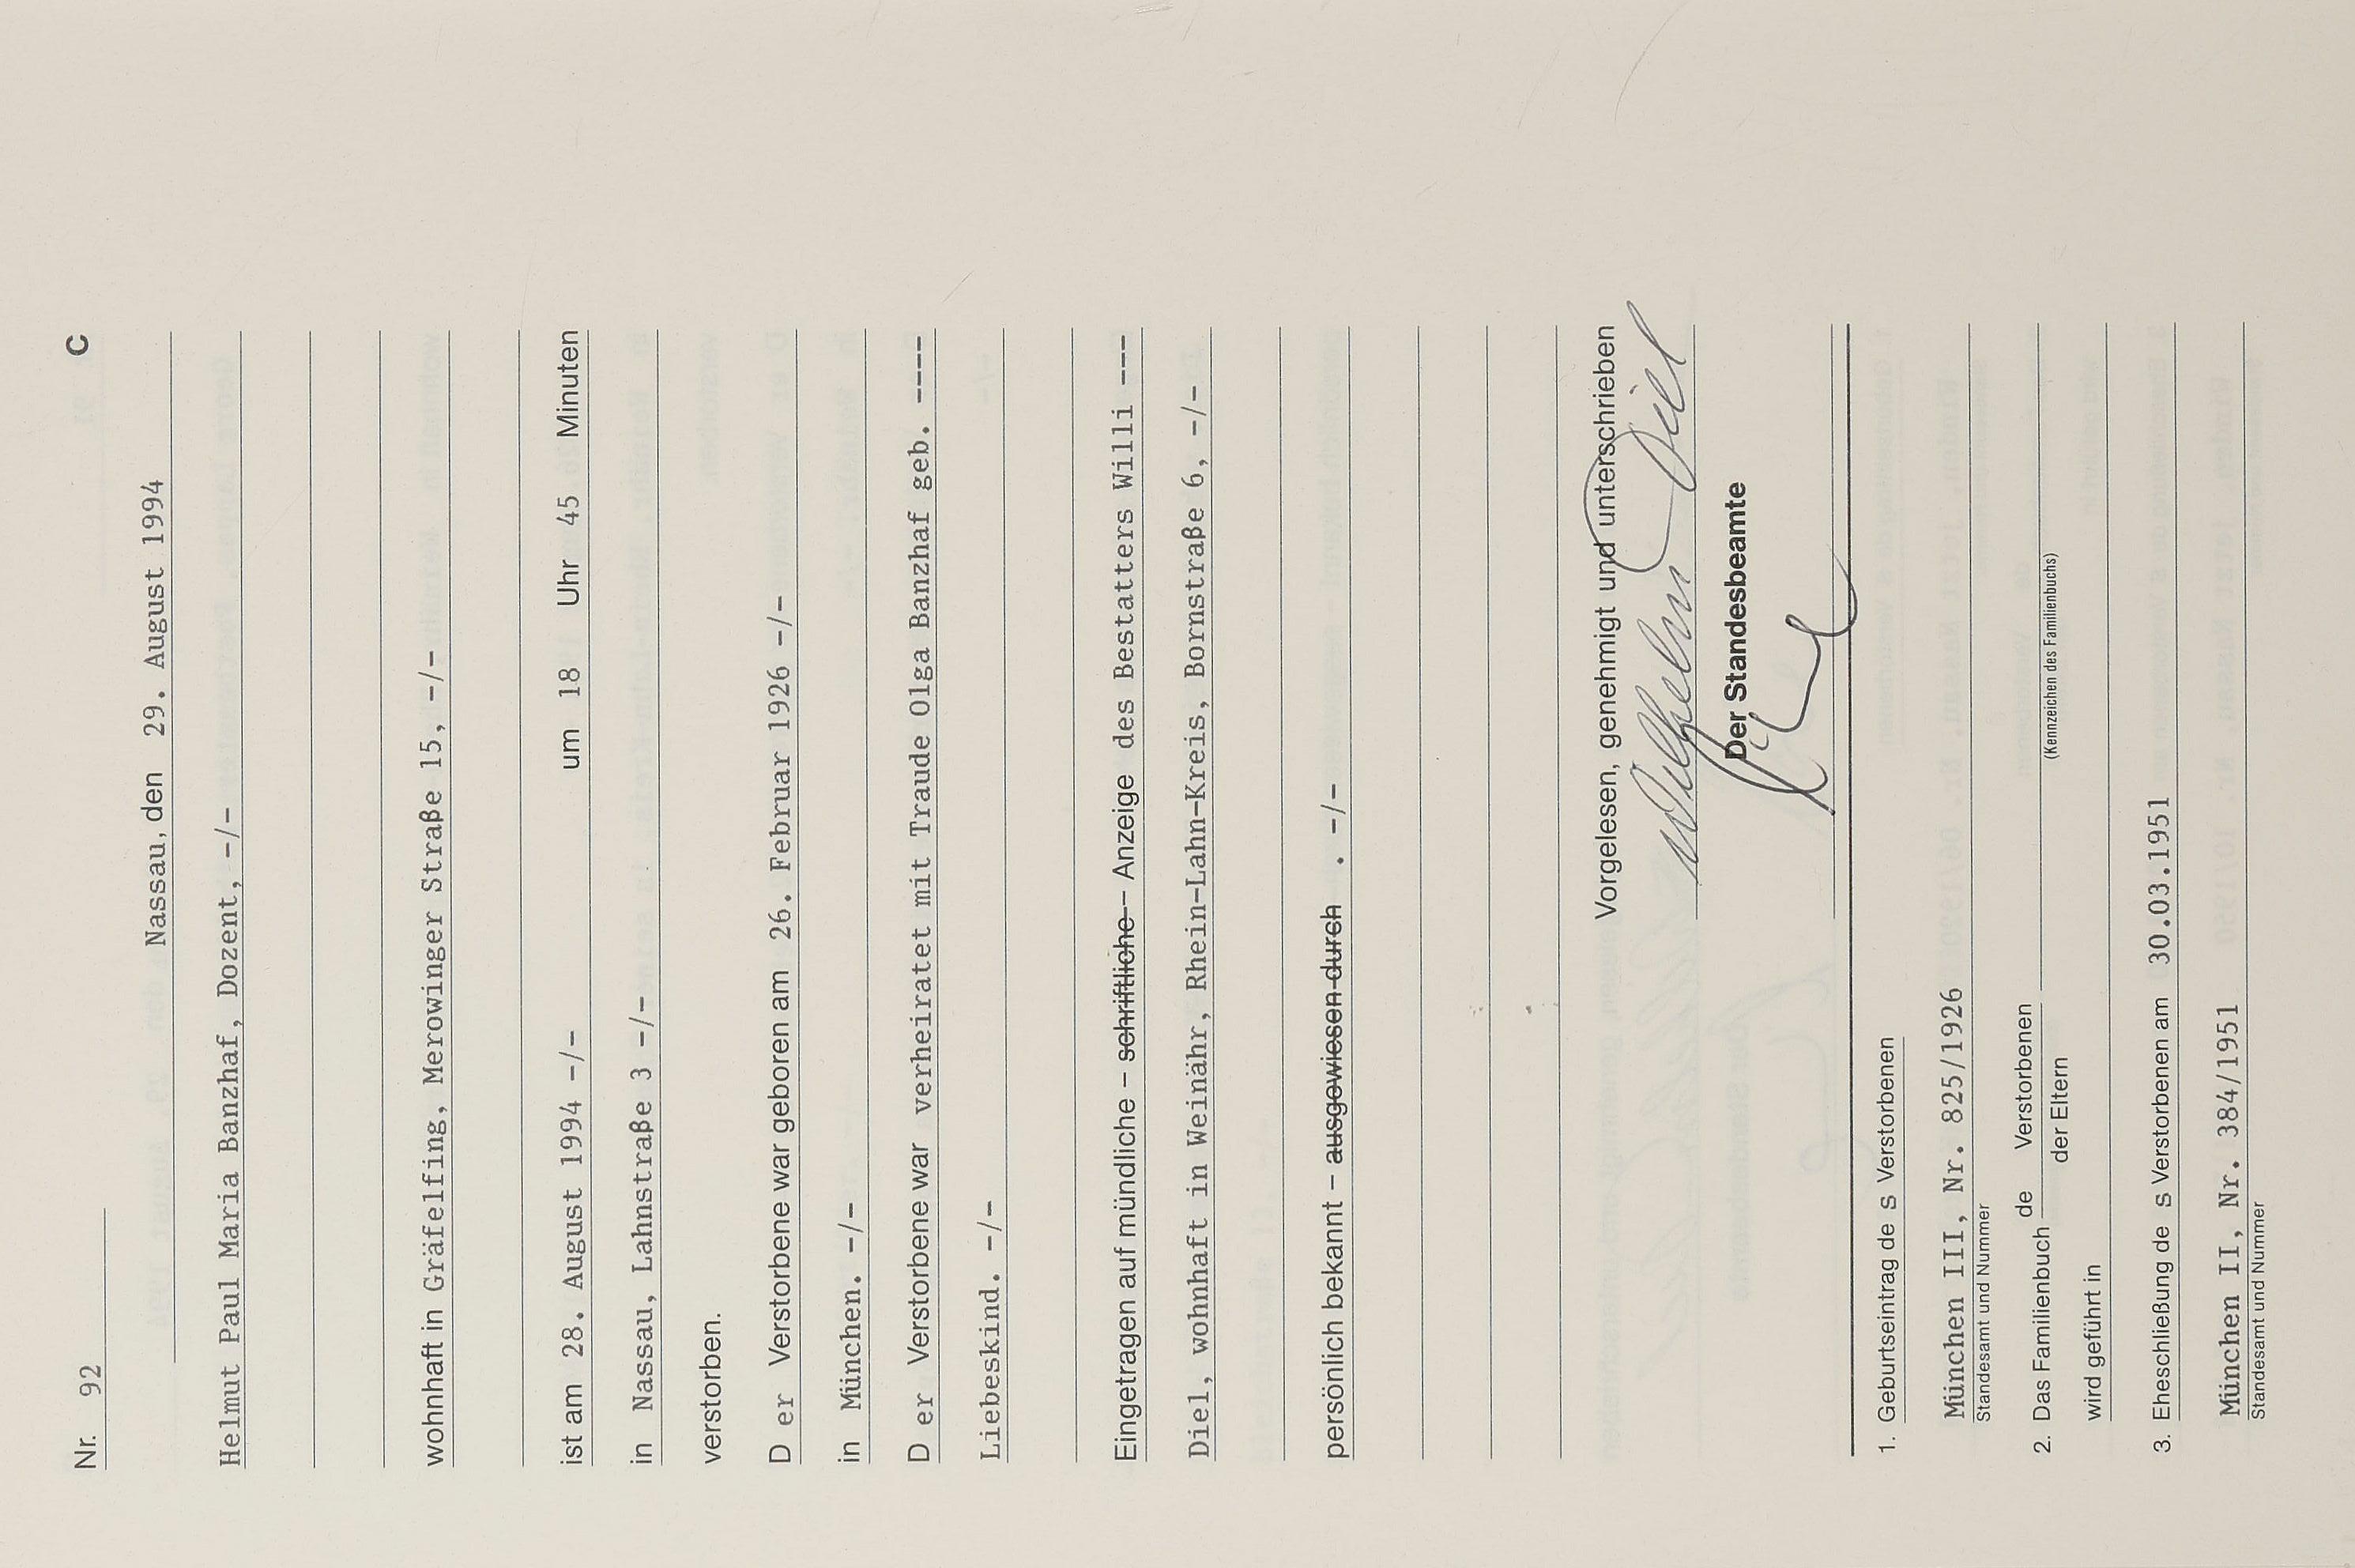 Nr. 92 C
Nassau, den 29. August 1994
Helmut Paul Maria Banzhaf, Dozent, -/-
wohnhaft in Gräfelfing, Merowinger Straße 15, -/-
ist am 28. August 1994 -/- um 18 Uhr 45 Minuten
in Nassau, Lahnstraße 3 -/-
verstorben.
D er Verstorbene war geboren am 26. Februar 1926 -/-
in München. -/-
D er Verstorbene war verheiratet mit Traude Olga Banzhaf geb. ----
Liebeskind. -/-
Eingetragen auf mündliche – schriftliche – Anzeige des Bestatters Willi ---
Diel, wohnhaft in Weinähr, Rhein-Lahn-Kreis, Bornstraße 6, -/-
persönlich bekannt – ausgewiesen durch . -/-
Vorgelesen, genehmigt und unterschrieben
Wilhelm Diel
Der Standesbeamte
1. Geburtseintrag de s Verstorbenen
München III, Nr. 825/1926
Standesamt und Nummer
2. Das Familienbuch de Verstorbenen
der Eltern
(Kennzeichen des Familienbuchs)
wird geführt in
3. Eheschließung de s Verstorbenen am 30.03.1951
München II, Nr. 384/1951
Standesamt und Nummer